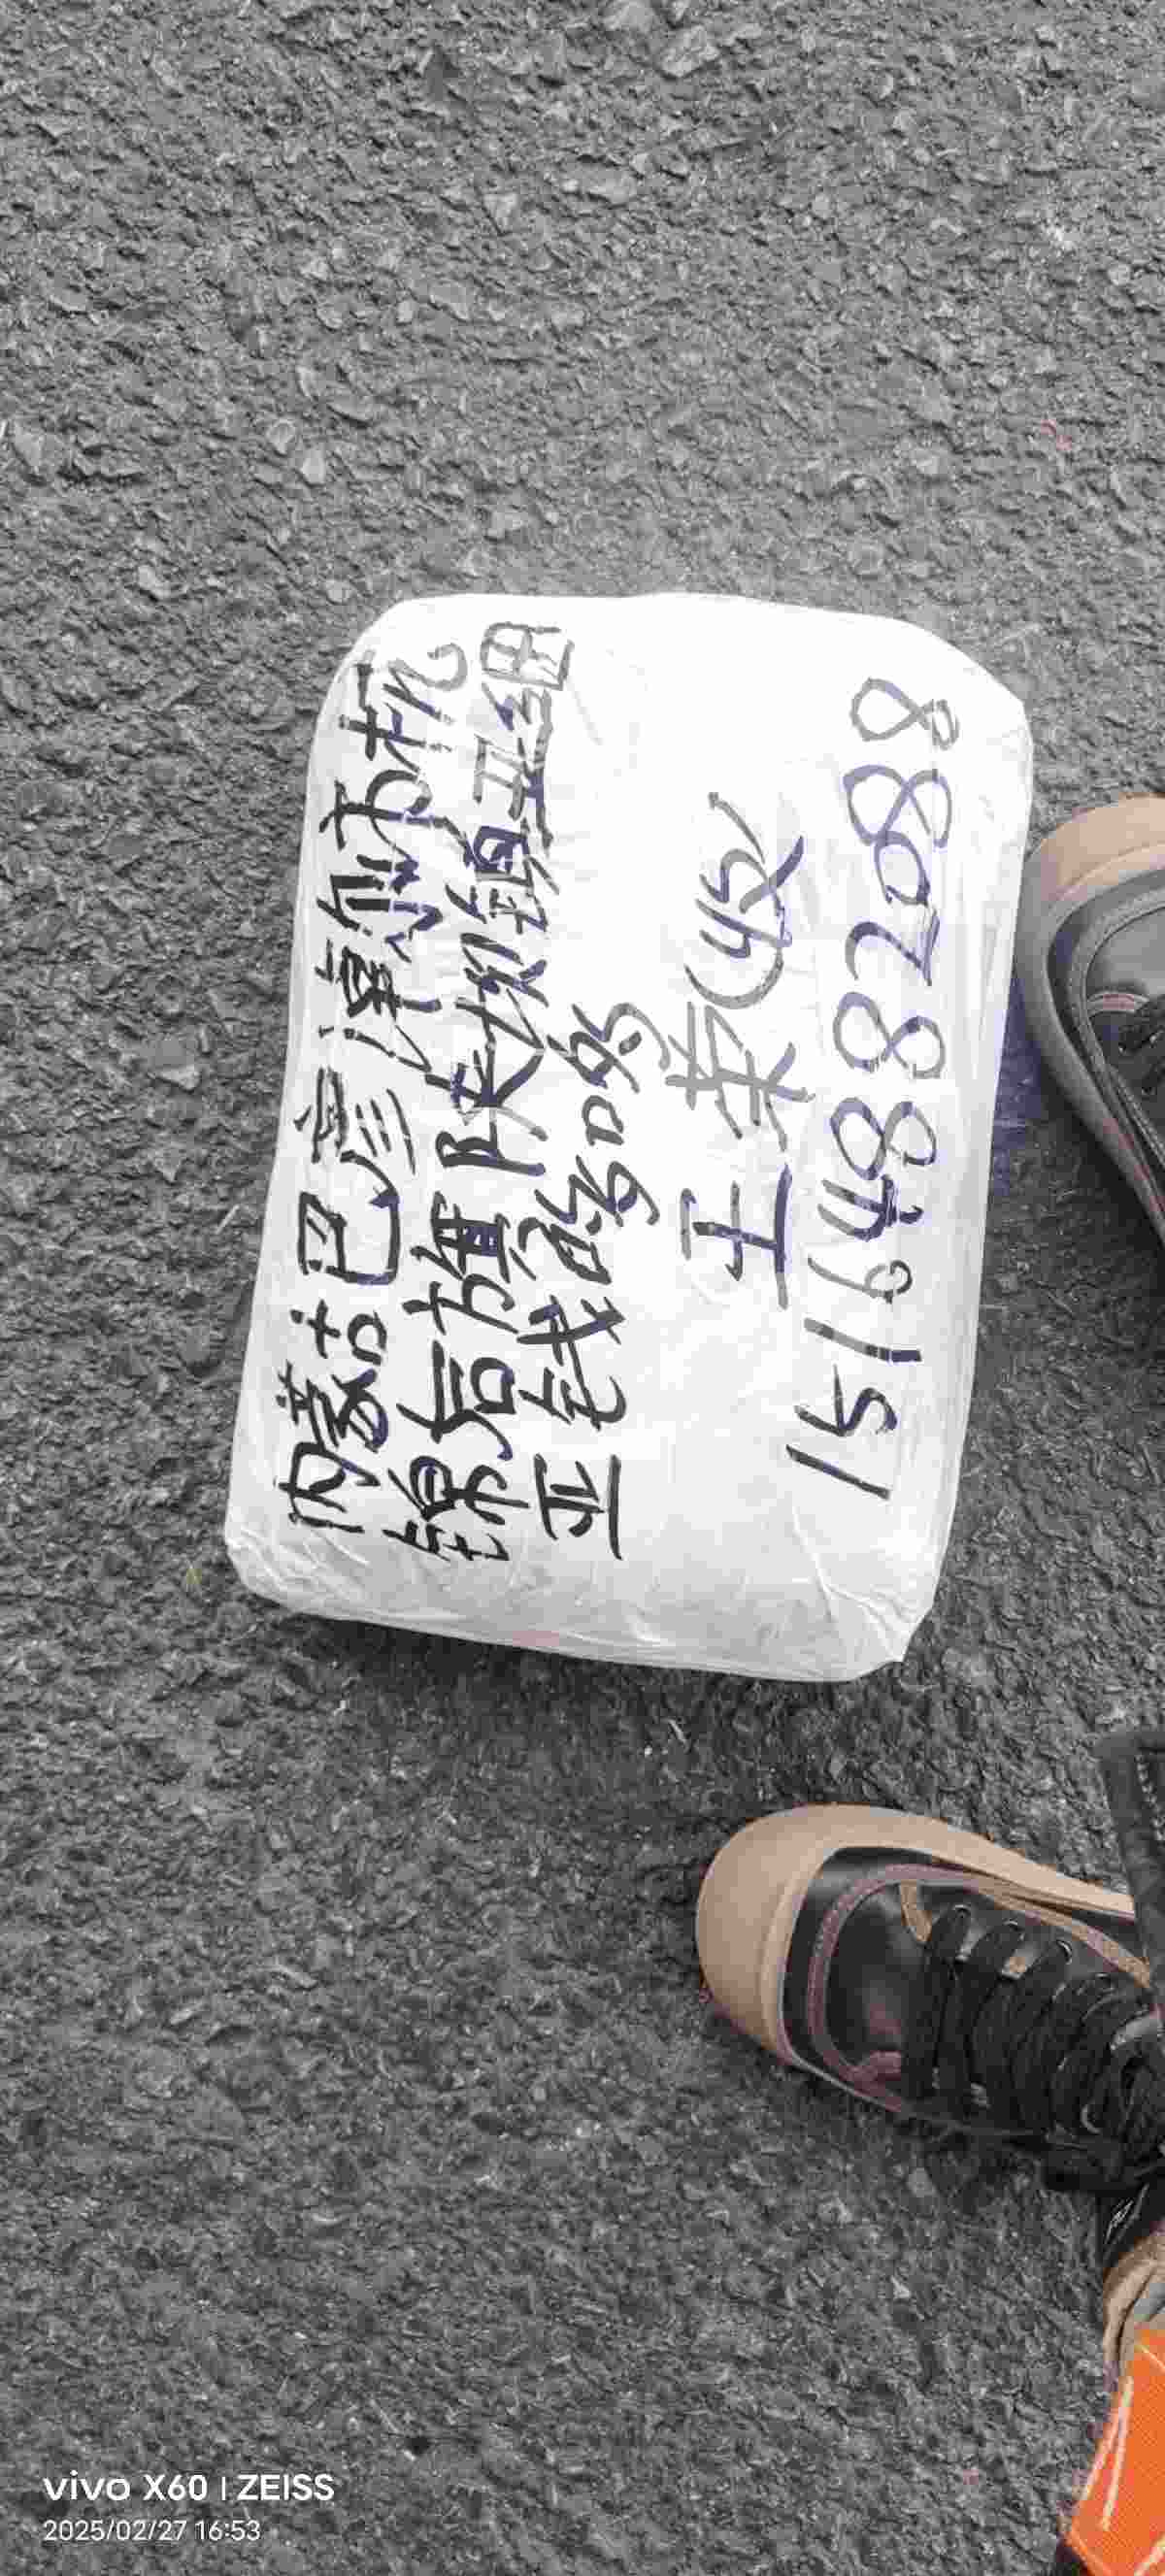 内蒙古巴彦淖尔市杭
锦后旗陕坝镇工业园
亚钱路口路
王荣(收
15164887088
vivo X60 | ZEISS
2025/02/27 16:53